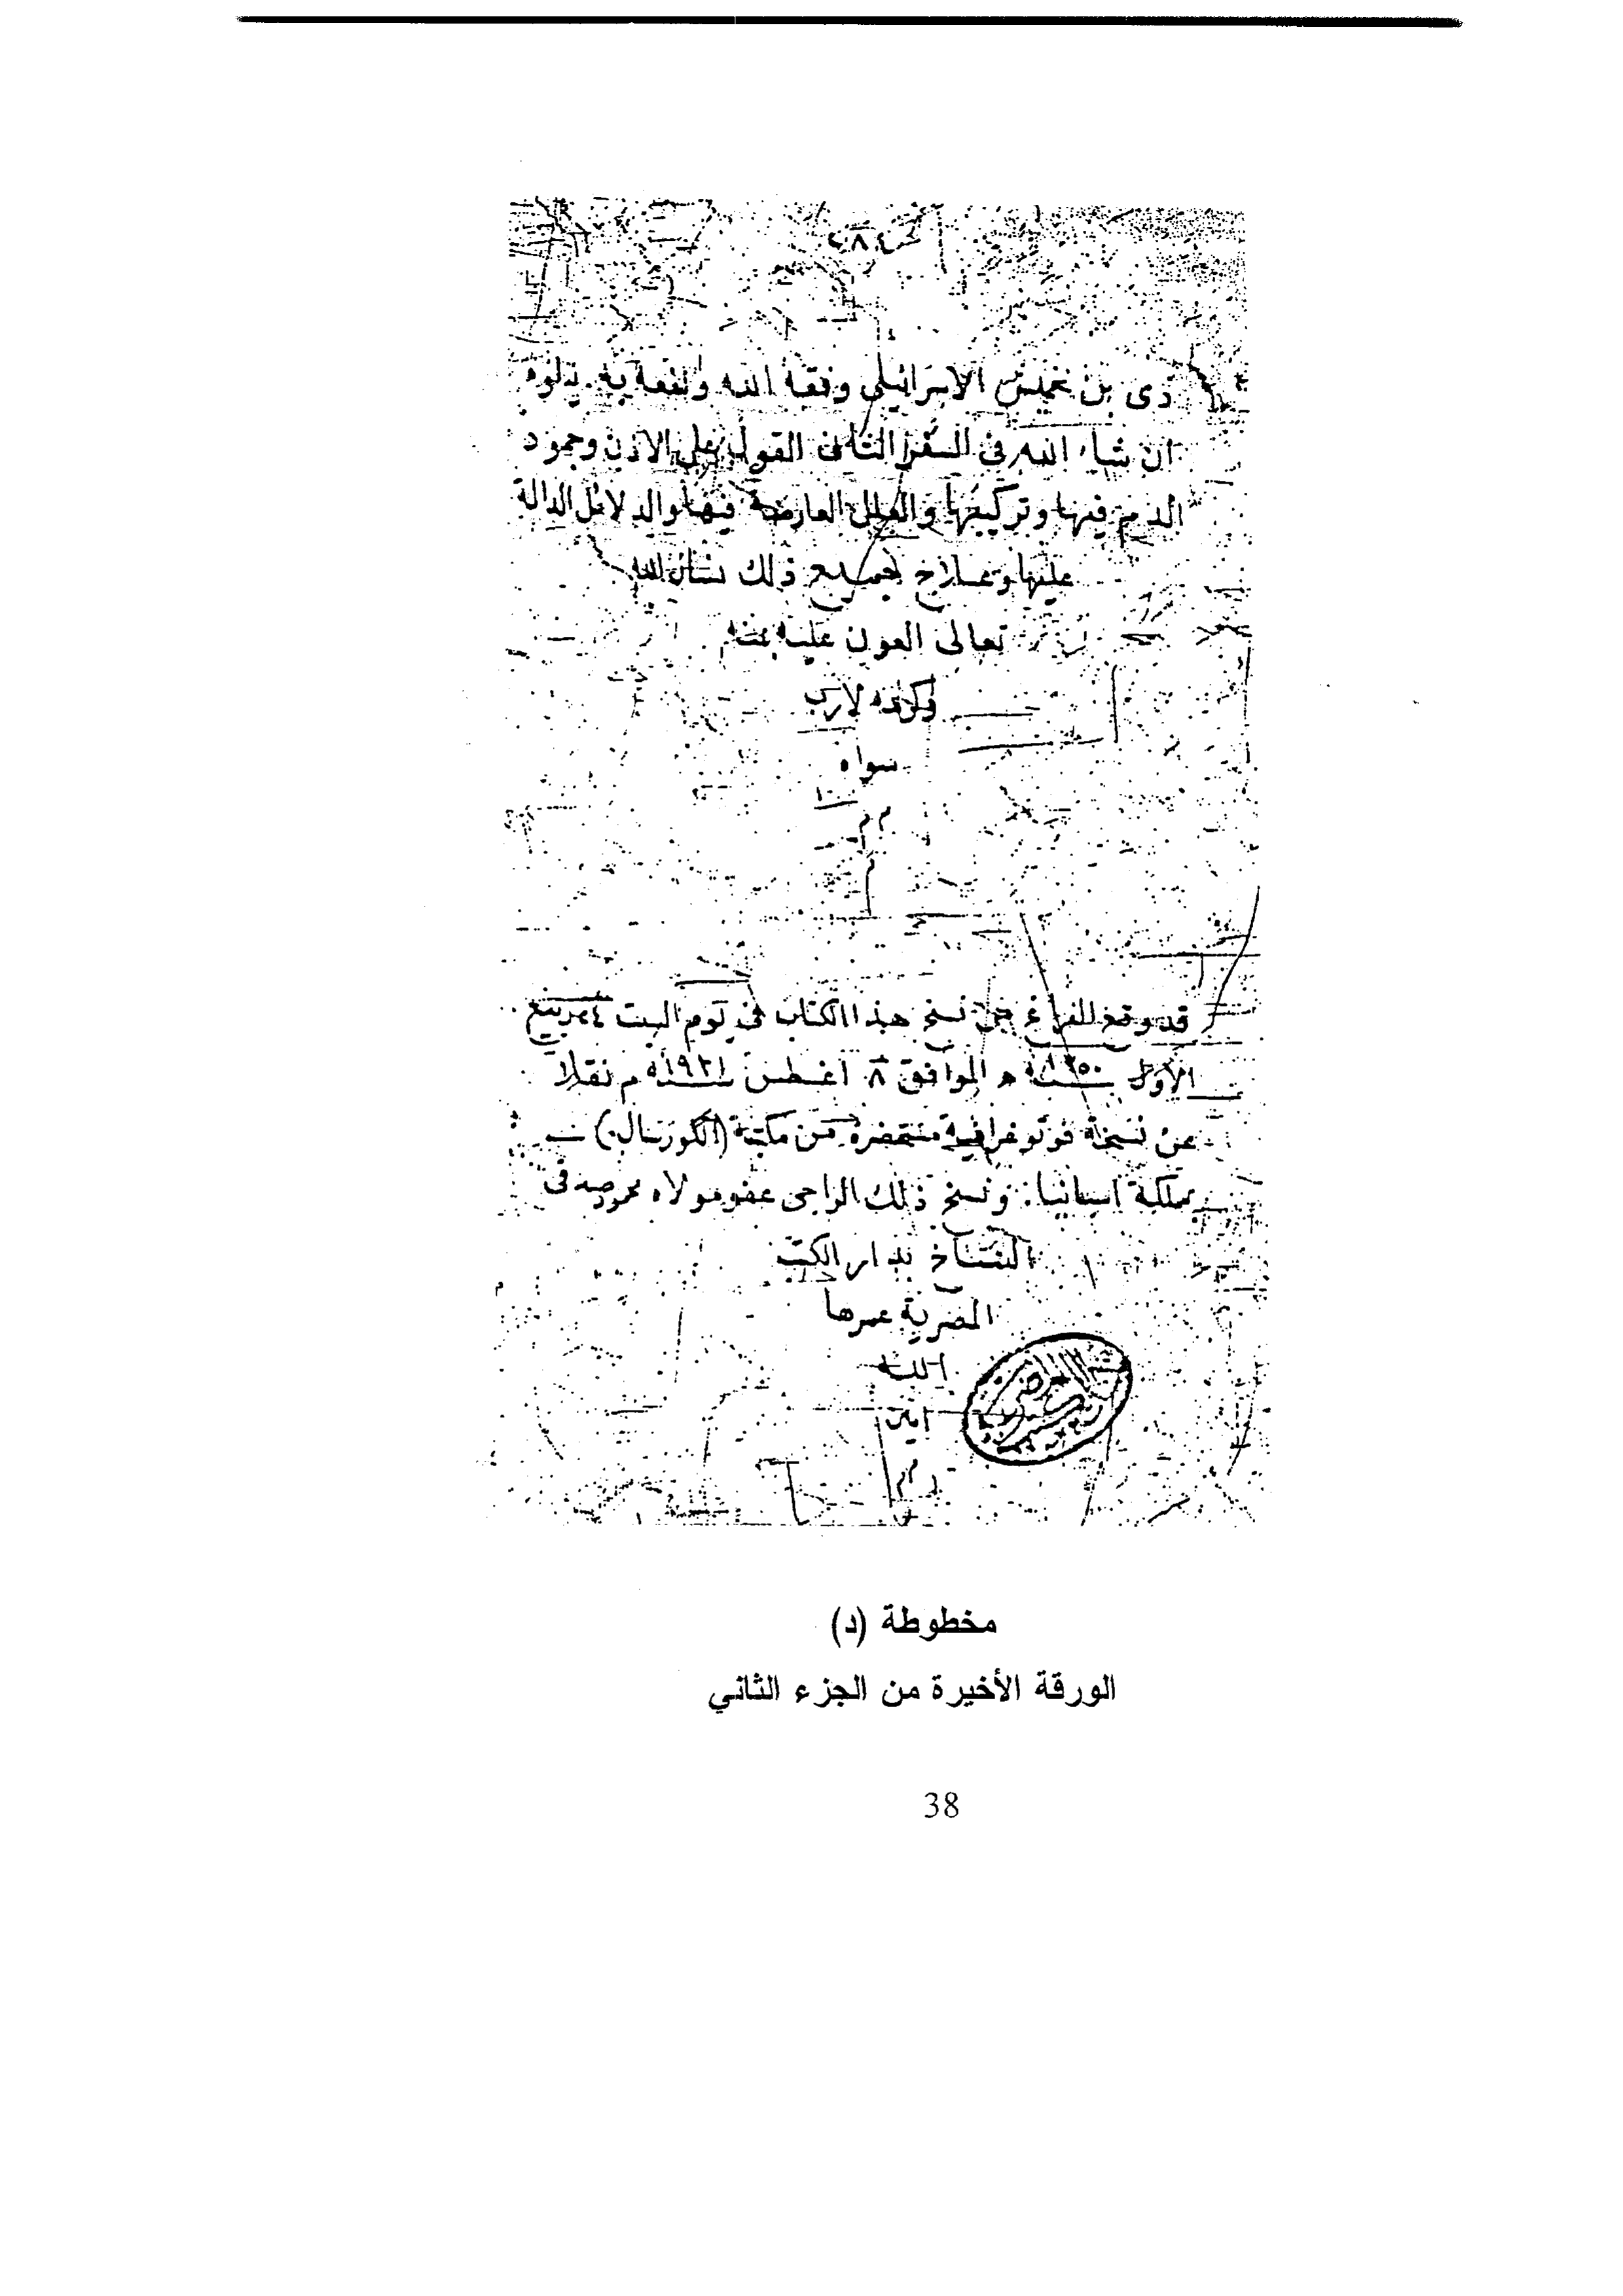 دى بن خميس الاسرائيلى وفقه الله ونفعه به. يتلوه
ان شاء الله فى السفر الثانى القول على الاذن وجمود
الدم فيها وتركيبها والعلل العارضة فيها والدلائل الدالة
عليها وعلاج جميع ذلك نسأل الله
تعالى العون عليه بمنه
وكرمه لا رب
سواه
م م
م
قد وقع الفراغ من نسخ هذا الكتاب فى يوم السبت ٢٤ ربيع
الأول سنة ١٣٥٠ ه الموافق ٨ اغسطس سنة ١٩٣١ م نقلا
عن نسخة فوتوغرافية مستحضرة من مكتبة (الكوريال)
بمملكة اسبانيا: ونسخ ذلك الراجى عفو مولاه محمود صدقى
النساخ بدار الكتب
المصرية عمرها
الله
امين
م م
مخطوطة (د)
الورقة الأخيرة من الجزء الثاني
38